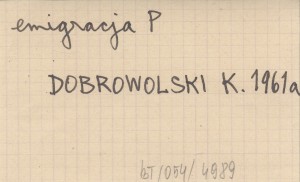 emigracja P
DOBROWOLSKI K. 1961a
BT/054/4989